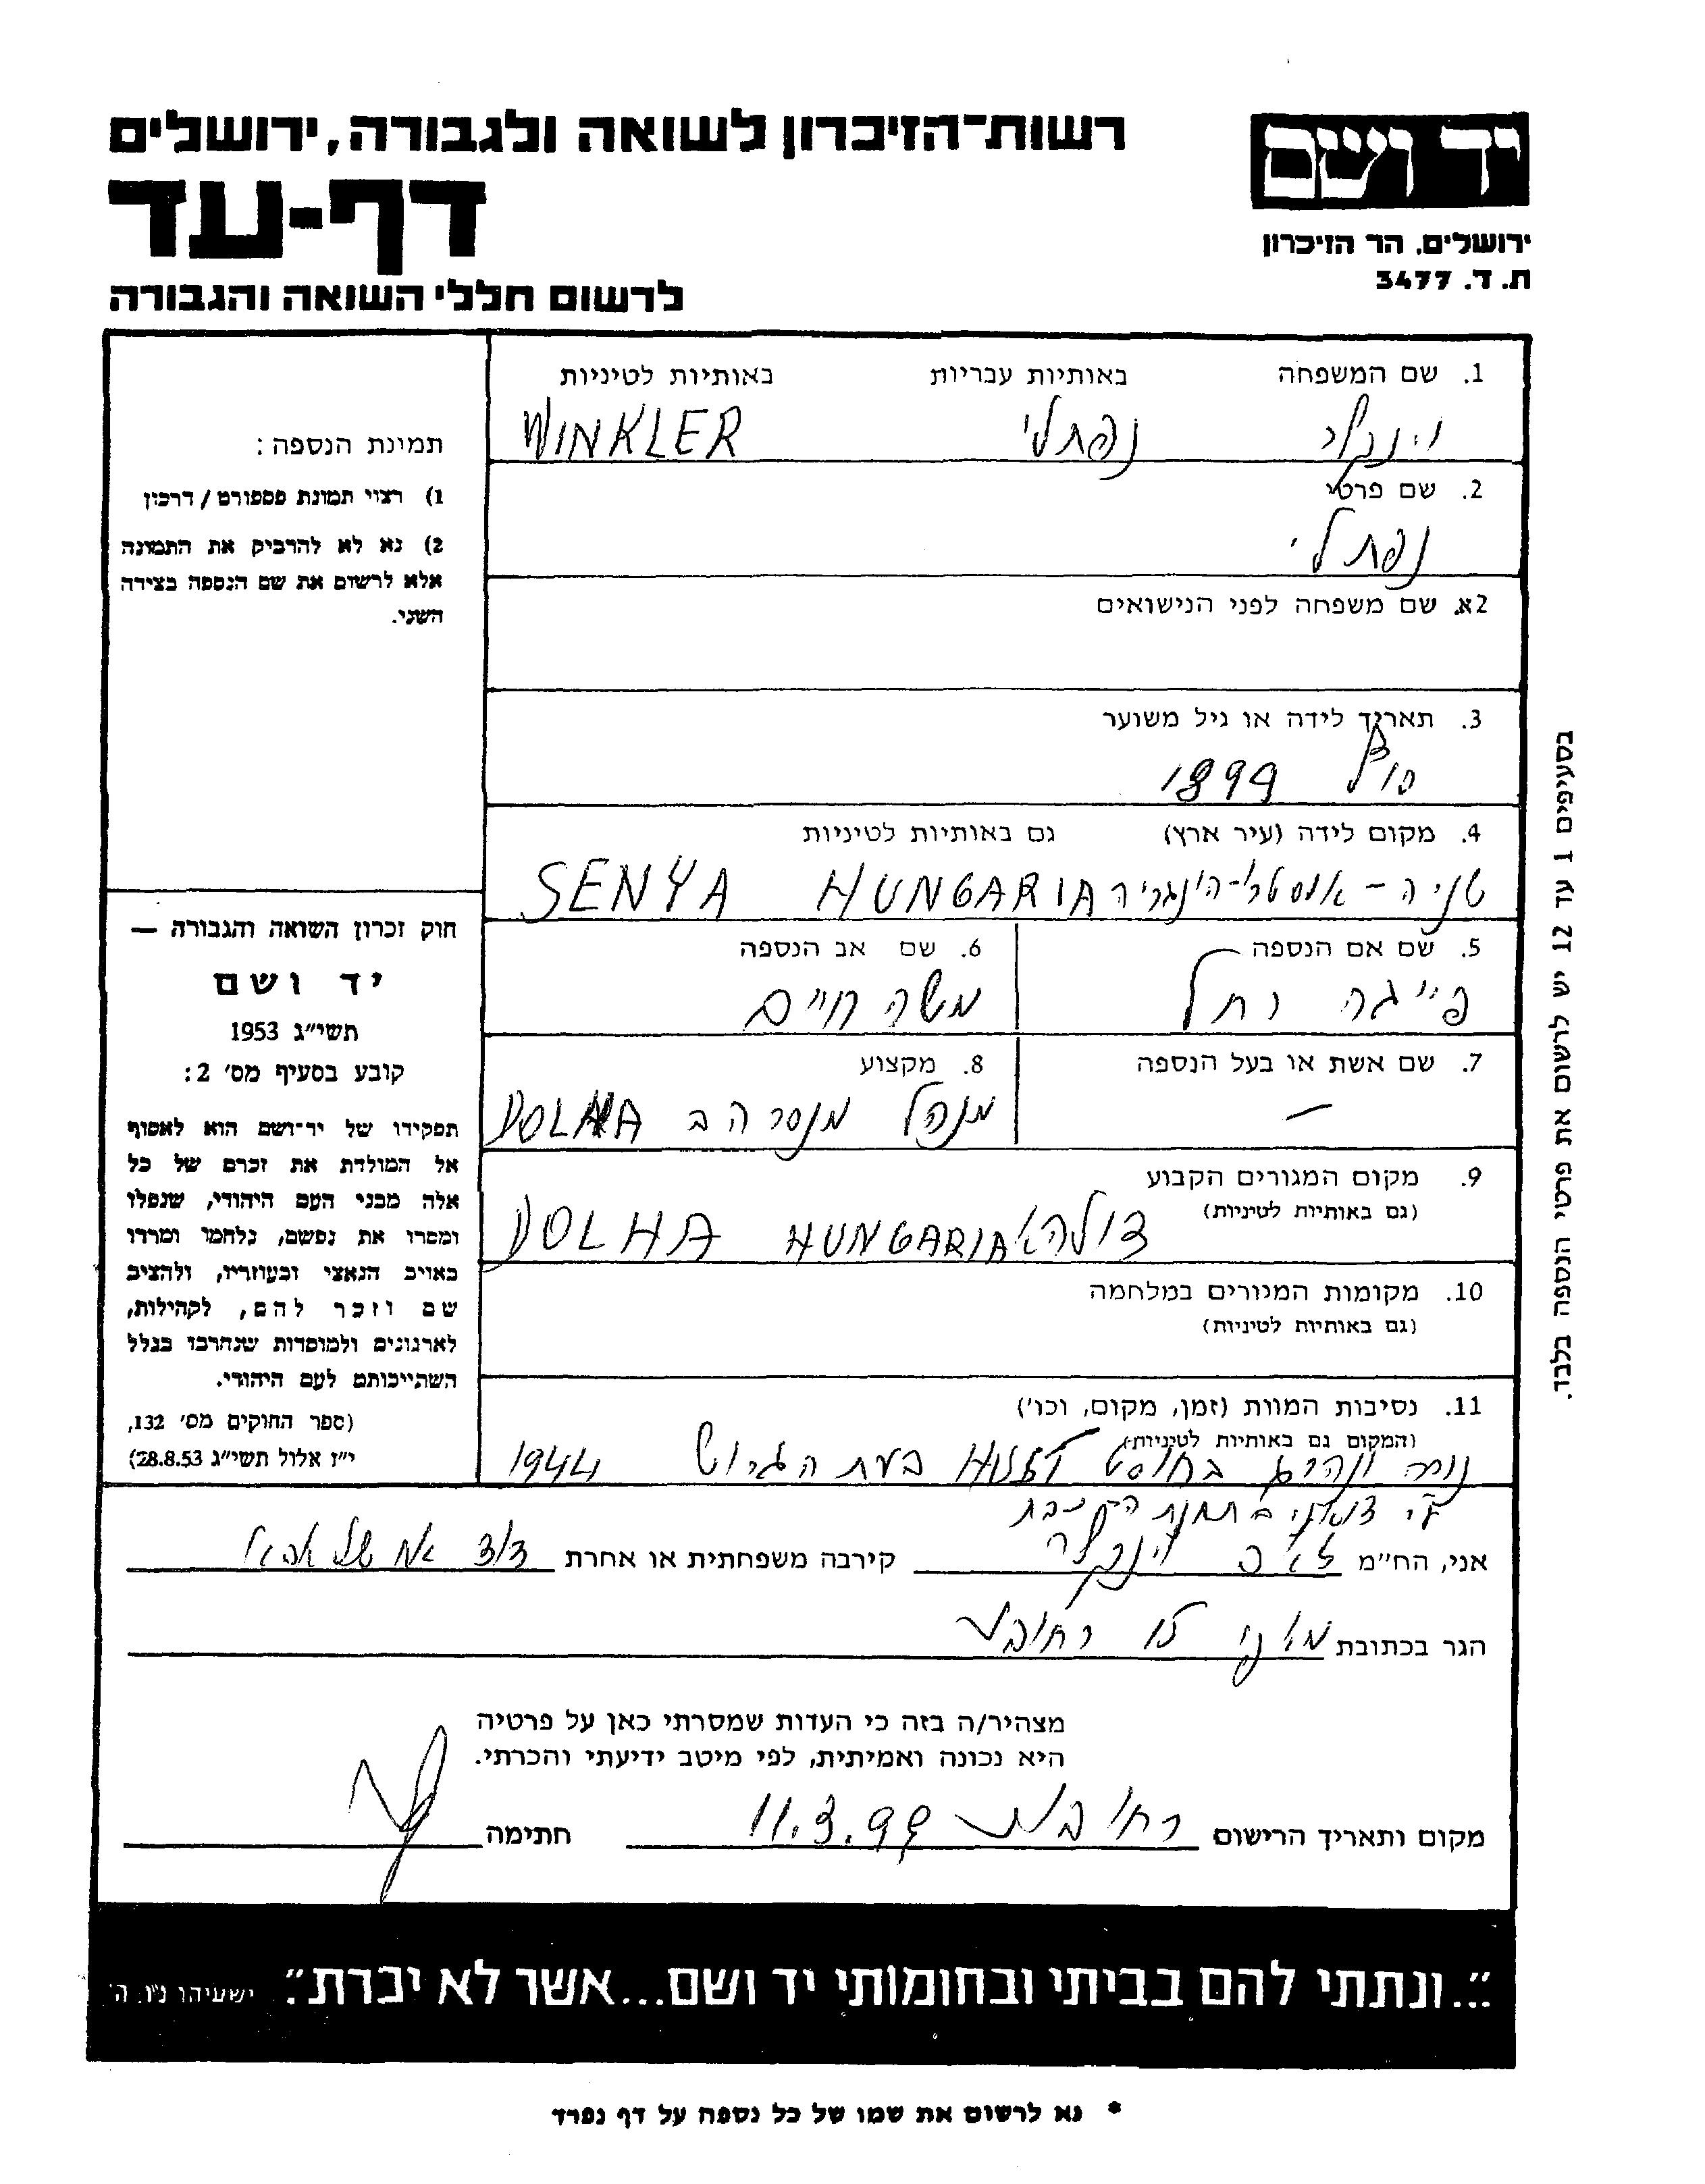 רשות־הזיכרון לשואה ולגבורה, ירושלים
יד ושם
דף-עד
ירושלים, הר הזיכרון
ת.ד. 3477
לרשום חללי השואה והגבורה
1. שם המשפחה באותיות עבריות באותיות לטיניות
וינקלר נפתלי WINKLER
2. שם פרטי
נפתלי
2א. שם משפחה לפני הנישואים
3. תאריך לידה או גיל משוער
1899
4. מקום לידה (עיר ארץ) גם באותיות לטיניות
HUNGARIA SENYA
5. שם אם הנספה
פייגה רחל
6. שם אב הנספה
משה חיים
7. שם אשת או בעל הנספה
—
8. מקצוע
מנהל מנסרה ב DOLHA
9. מקום המגורים הקבוע
(גם באותיות לטיניות)
דולהא HUNGARIA DOLHA
10. מקומות המגורים במלחמה
(גם באותיות לטיניות)
11. נסיבות המוות (זמן, מקום, וכו')
(המקום גם באותיות לטיניות)
נורה ונהרג בחוסט HUSZT בעת הגרוש 1944
בתחנת הרכבת
אני, הח״מ זאב וינקלר קירבה משפחתית או אחרת דוד אח של אבא
הגר בכתובת רחובות
מצהיר/ה בזה כי העדות שמסרתי כאן על פרטיה
היא נכונה ואמיתית, לפי מיטב ידיעתי והכרתי.
מקום ותאריך הרישום רחובות 11.3.99 חתימה
תמונת הנספה:
1) רצוי תמונת פספורט / דרכון
2) נא לא להדביק את התמונה
אלא לרשום את שם הנספה בצידה
השני.
חוק זכרון השואה והגבורה —
יד ושם
תשי״ג 1953
קובע בסעיף מס׳ 2:
תפקידו של יד־ושם הוא לאסוף
אל המולדת את זכרם של כל
אלה מבני העם היהודי, שנפלו
ומסרו את נפשם, נלחמו ומרדו
באויב הנאצי ובעוזריו, ולהציב
שם וזכר להם, לקהילות,
לארגונים ולמוסדות שנחרבו בגלל
השתייכותם לעם היהודי.
(ספר החוקים מס׳ 132,
י״ז אלול תשי״ג 28.8.53)
בסעיפים 1 עד 12 יש לרשום את פרטי הנספה בלבד.
״...ונתתי להם בביתי ובחומותי יד ושם...אשר לא יכרת״. ישעיהו נ״ו, ה׳
* נא לרשום את שמו של כל נספה על דף נפרד